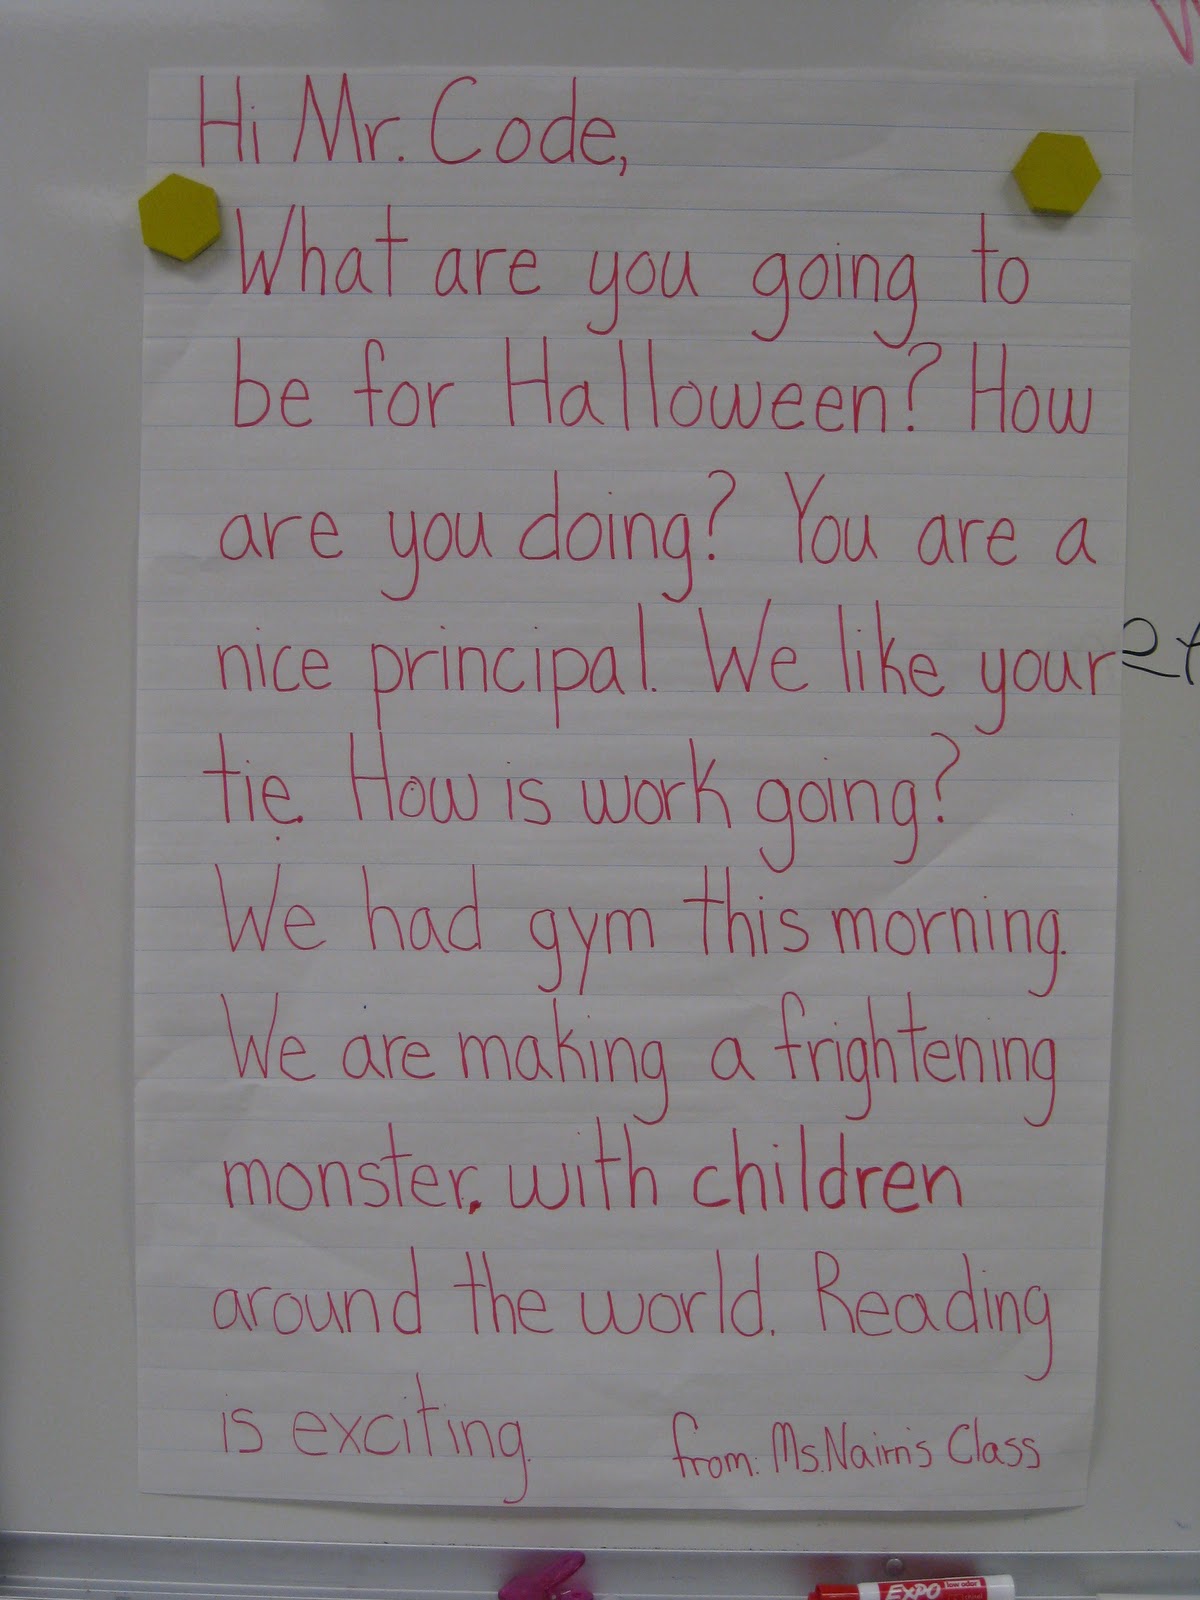 Hi Mr. Code,
What are you going to
be for Halloween? How
are you doing? You are a
nice principal. We like your
tie. How is work going?
We had gym this morning.
We are making a frightening
monster. with children
around the world. Reading
is exciting.
from: Ms. Nairn's Class
EXPO
low odor